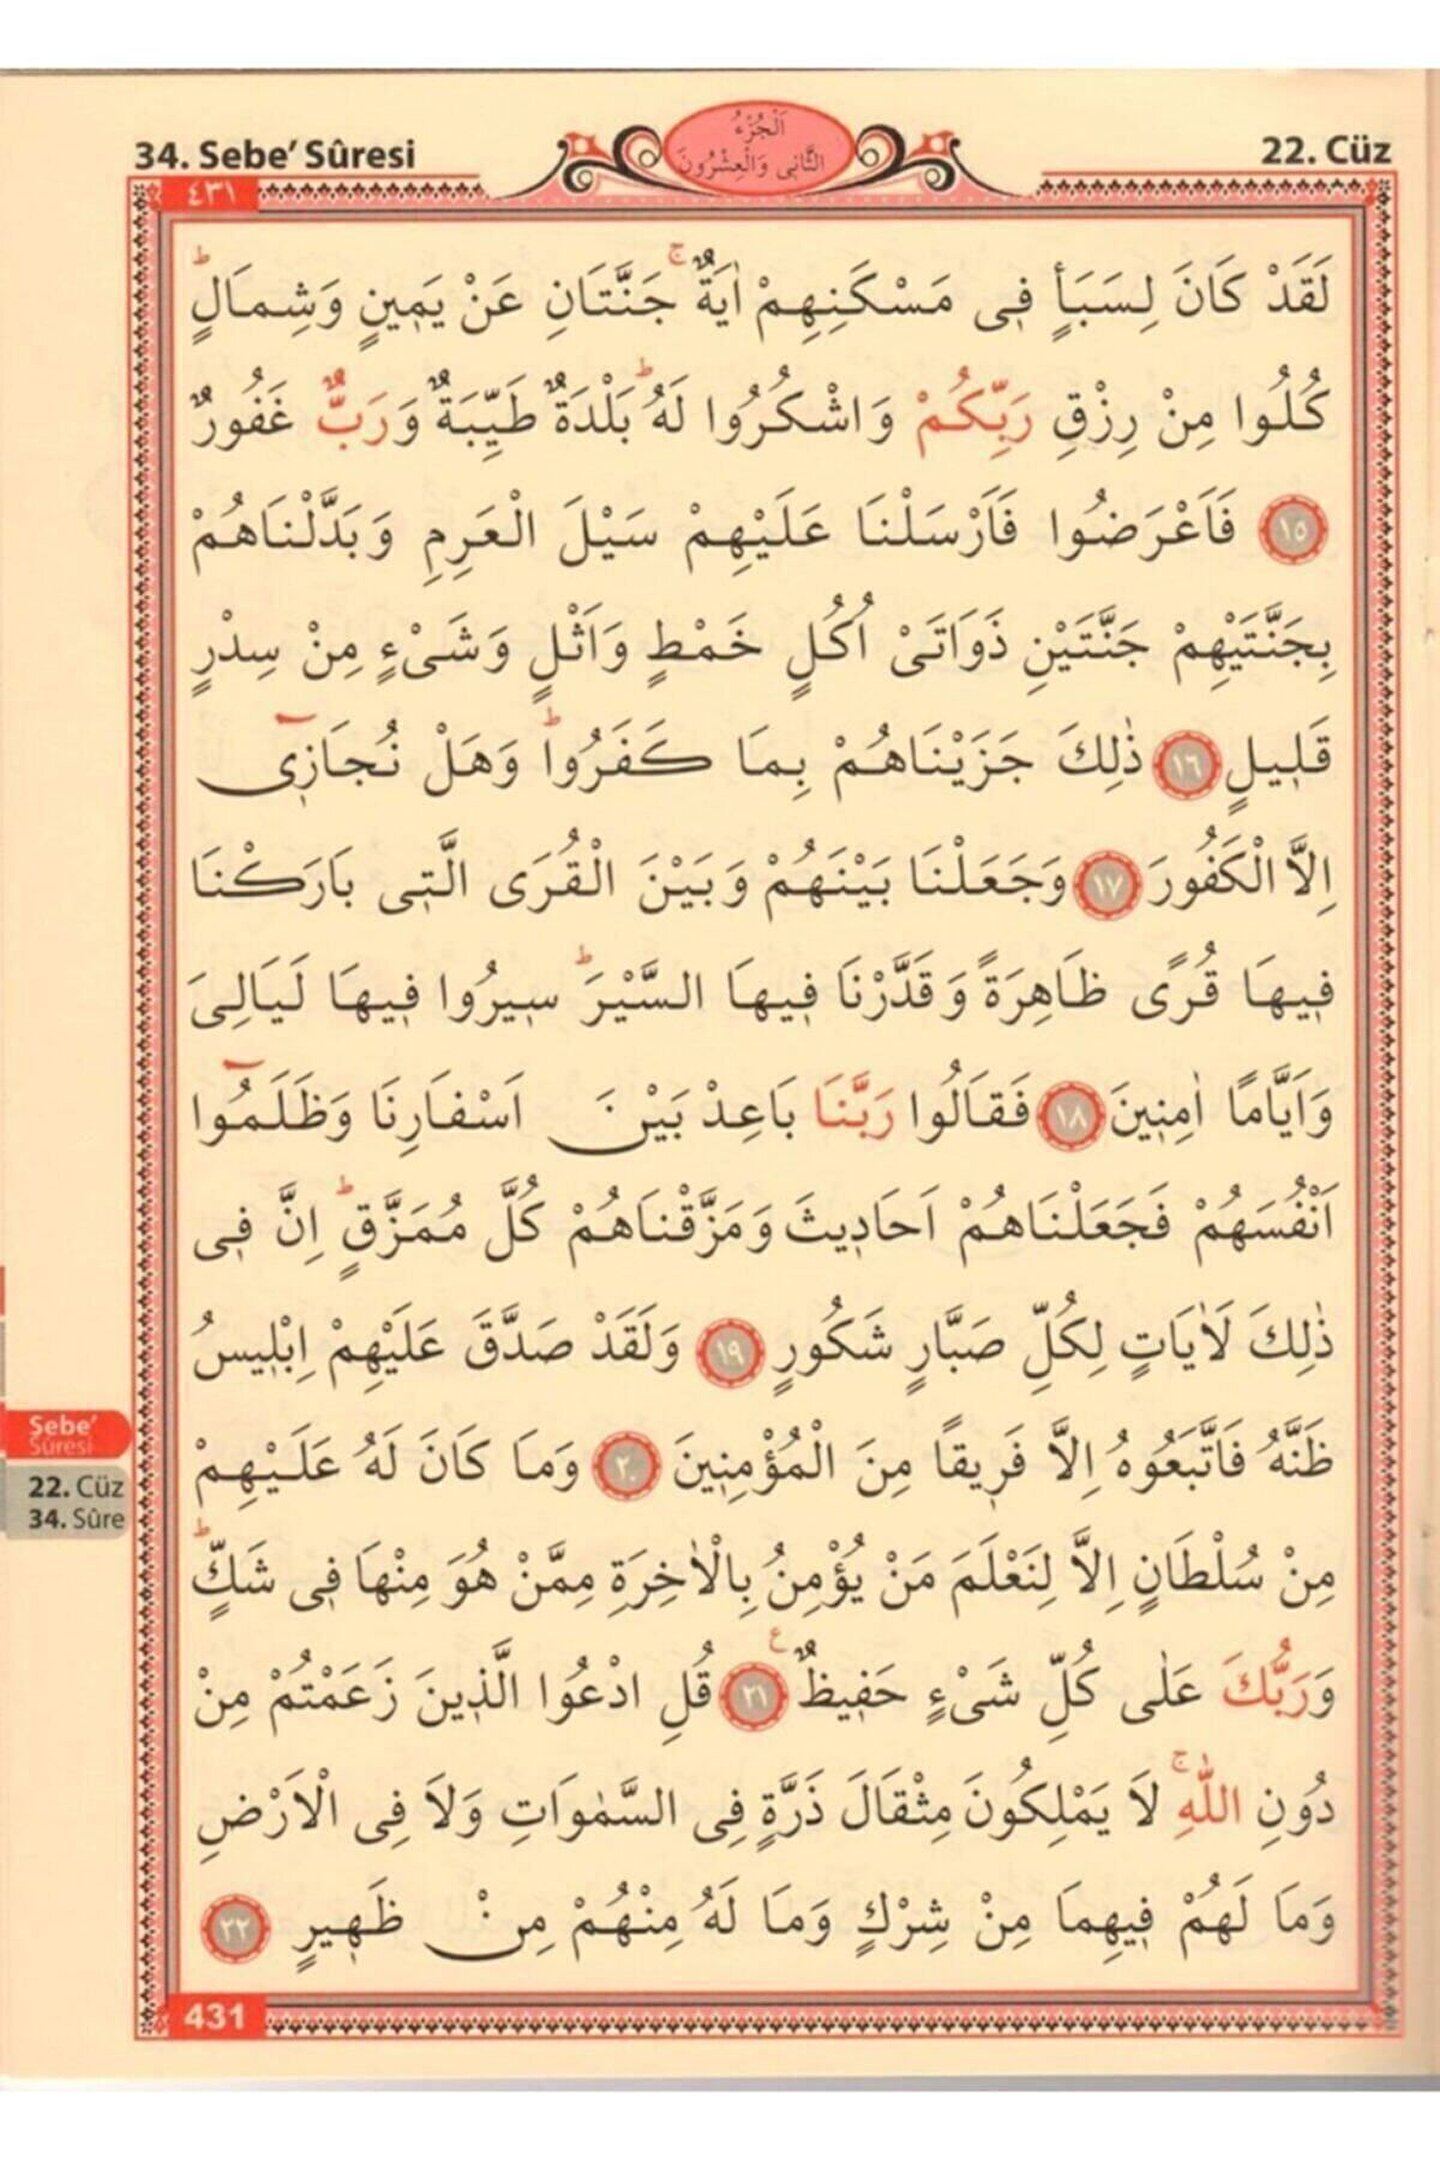 34. Sebe’ Sûresi
اَلْجُزْءُ
الثَّانِى وَالْعِشْرُونَ
22. Cüz
٤٣١
لَقَدْ كَانَ لِسَبَأٍ فِى مَسْكَنِهِمْ اٰيَةٌۚ جَنَّتَانِ عَنْ يَمِينٍ وَشِمَالٍۜ
كُلُوا مِنْ رِزْقِ رَبِّكُمْ وَاشْكُرُوا لَهُۜ بَلْدَةٌ طَيِّبَةٌ وَرَبٌّ غَفُورٌ
١٥ فَاَعْرَضُوا فَاَرْسَلْنَا عَلَيْهِمْ سَيْلَ الْعَرِمِ وَبَدَّلْنَاهُمْ
بِجَنَّتَيْهِمْ جَنَّتَيْنِ ذَوَاتَىْ اُكُلٍ خَمْطٍ وَاَثْلٍ وَشَىْءٍ مِنْ سِدْرٍ
قَلِيلٍ ١٦ ذٰلِكَ جَزَيْنَاهُمْ بِمَا كَفَرُواۜ وَهَلْ نُجَازِىٓ
اِلَّا الْكَفُورَ ١٧ وَجَعَلْنَا بَيْنَهُمْ وَبَيْنَ الْقُرَى الَّتِى بَارَكْنَا
فِيهَا قُرًى ظَاهِرَةً وَقَدَّرْنَا فِيهَا السَّيْرَۜ سِيرُوا فِيهَا لَيَالِىَ
وَاَيَّامًا اٰمِنِينَ ١٨ فَقَالُوا رَبَّنَا بَاعِدْ بَيْنَ اَسْفَارِنَا وَظَلَمُٓوا
اَنْفُسَهُمْ فَجَعَلْنَاهُمْ اَحَادِيثَ وَمَزَّقْنَاهُمْ كُلَّ مُمَزَّقٍۜ اِنَّ فِى
ذٰلِكَ لَاٰيَاتٍ لِكُلِّ صَبَّارٍ شَكُورٍ ١٩ وَلَقَدْ صَدَّقَ عَلَيْهِمْ اِبْلِيسُ
ظَنَّهُ فَاتَّبَعُوهُ اِلَّا فَرِيقًا مِنَ الْمُؤْمِنِينَ ٢٠ وَمَا كَانَ لَهُ عَلَيْهِمْ
مِنْ سُلْطَانٍ اِلَّا لِنَعْلَمَ مَنْ يُؤْمِنُ بِالْاٰخِرَةِ مِمَّنْ هُوَ مِنْهَا فِى شَكٍّۜ
وَرَبُّكَ عَلٰى كُلِّ شَىْءٍ حَفِيظٌ ع ٢١ قُلِ ادْعُوا الَّذِينَ زَعَمْتُمْ مِنْ
دُونِ اللّٰهِۚ لَا يَمْلِكُونَ مِثْقَالَ ذَرَّةٍ فِى السَّمٰوَاتِ وَلَا فِى الْاَرْضِ
وَمَا لَهُمْ فِيهِمَا مِنْ شِرْكٍ وَمَا لَهُ مِنْهُمْ مِنْ ظَهِيرٍ ٢٢
Sebe’
Sûresi
22. Cüz
34. Sûre
431